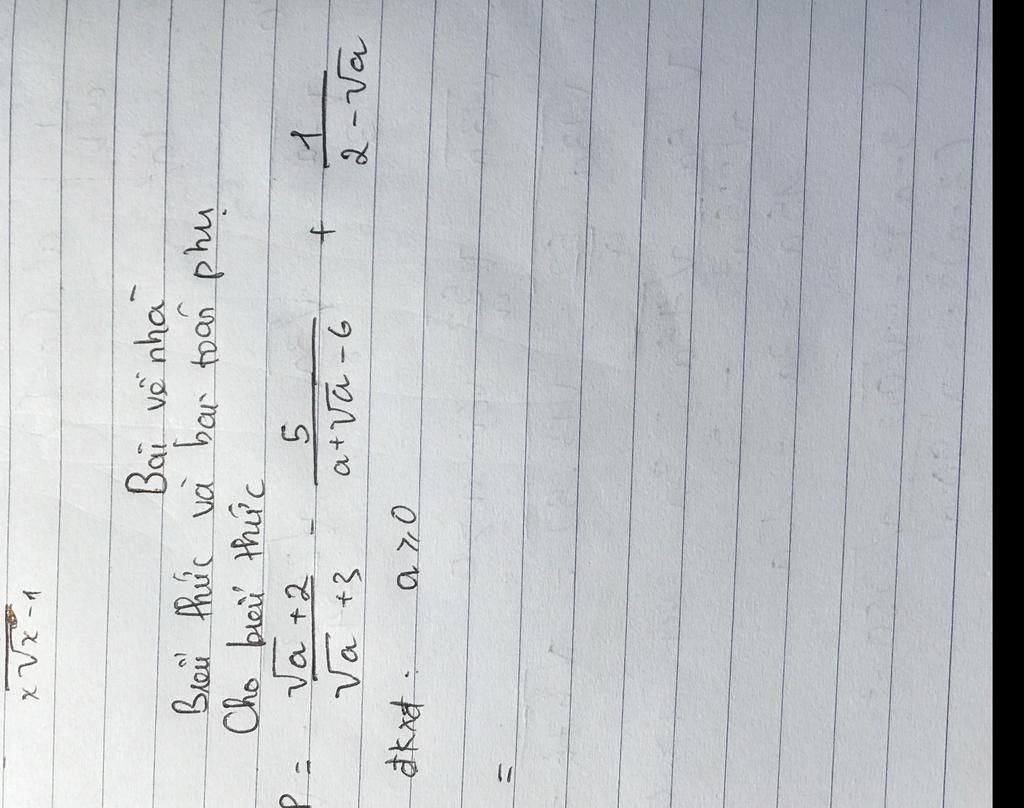 x√x - 1
Bài về nhà
Biểu thức và bài toán phụ.
Cho biểu thức
P = (√a + 2)/(√a + 3) - 5/(a + √a - 6) + 1/(2 - √a)
đkxđ. a ≥ 0
=